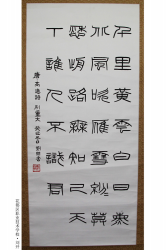 千里黄雲白日曛
北風吹雁雪紛〻莫
愁前路無知己天
下誰人不識君
唐高適詩別董大